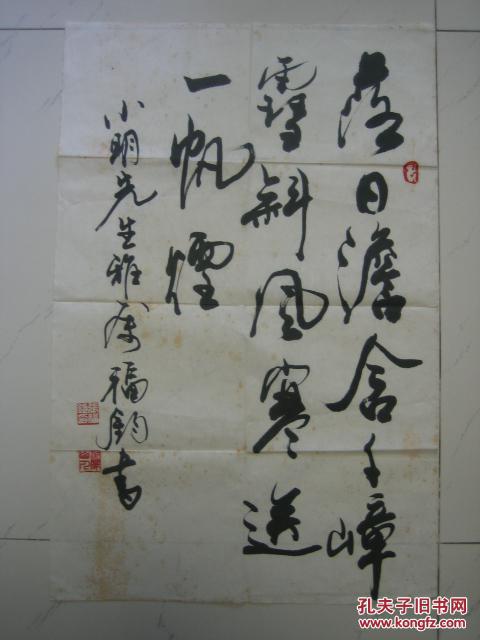 落日澹含千嶂
雪斜风寒送
一帆煙
小明先生雅属福钧书
孔夫子旧书网
www.kongfz.com